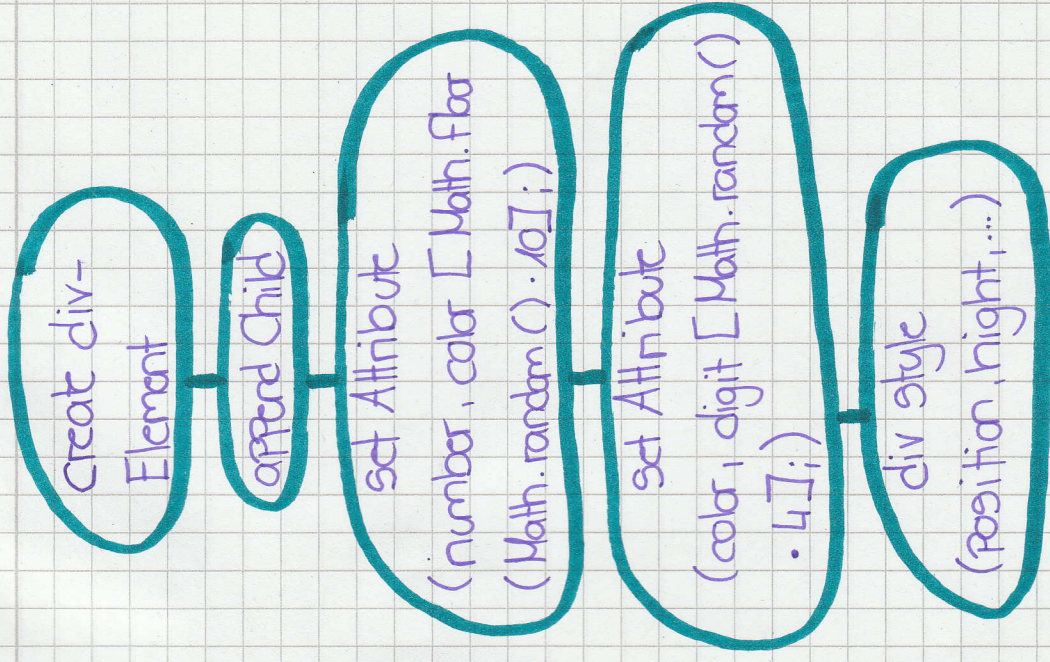 Create div-
Element
append Child
set Attribute
(number, color [Math.floor
(Math.random() · 10];)
set Attribute
(color, digit [Math.random()
· 4];)
div style
(position, hight,...)